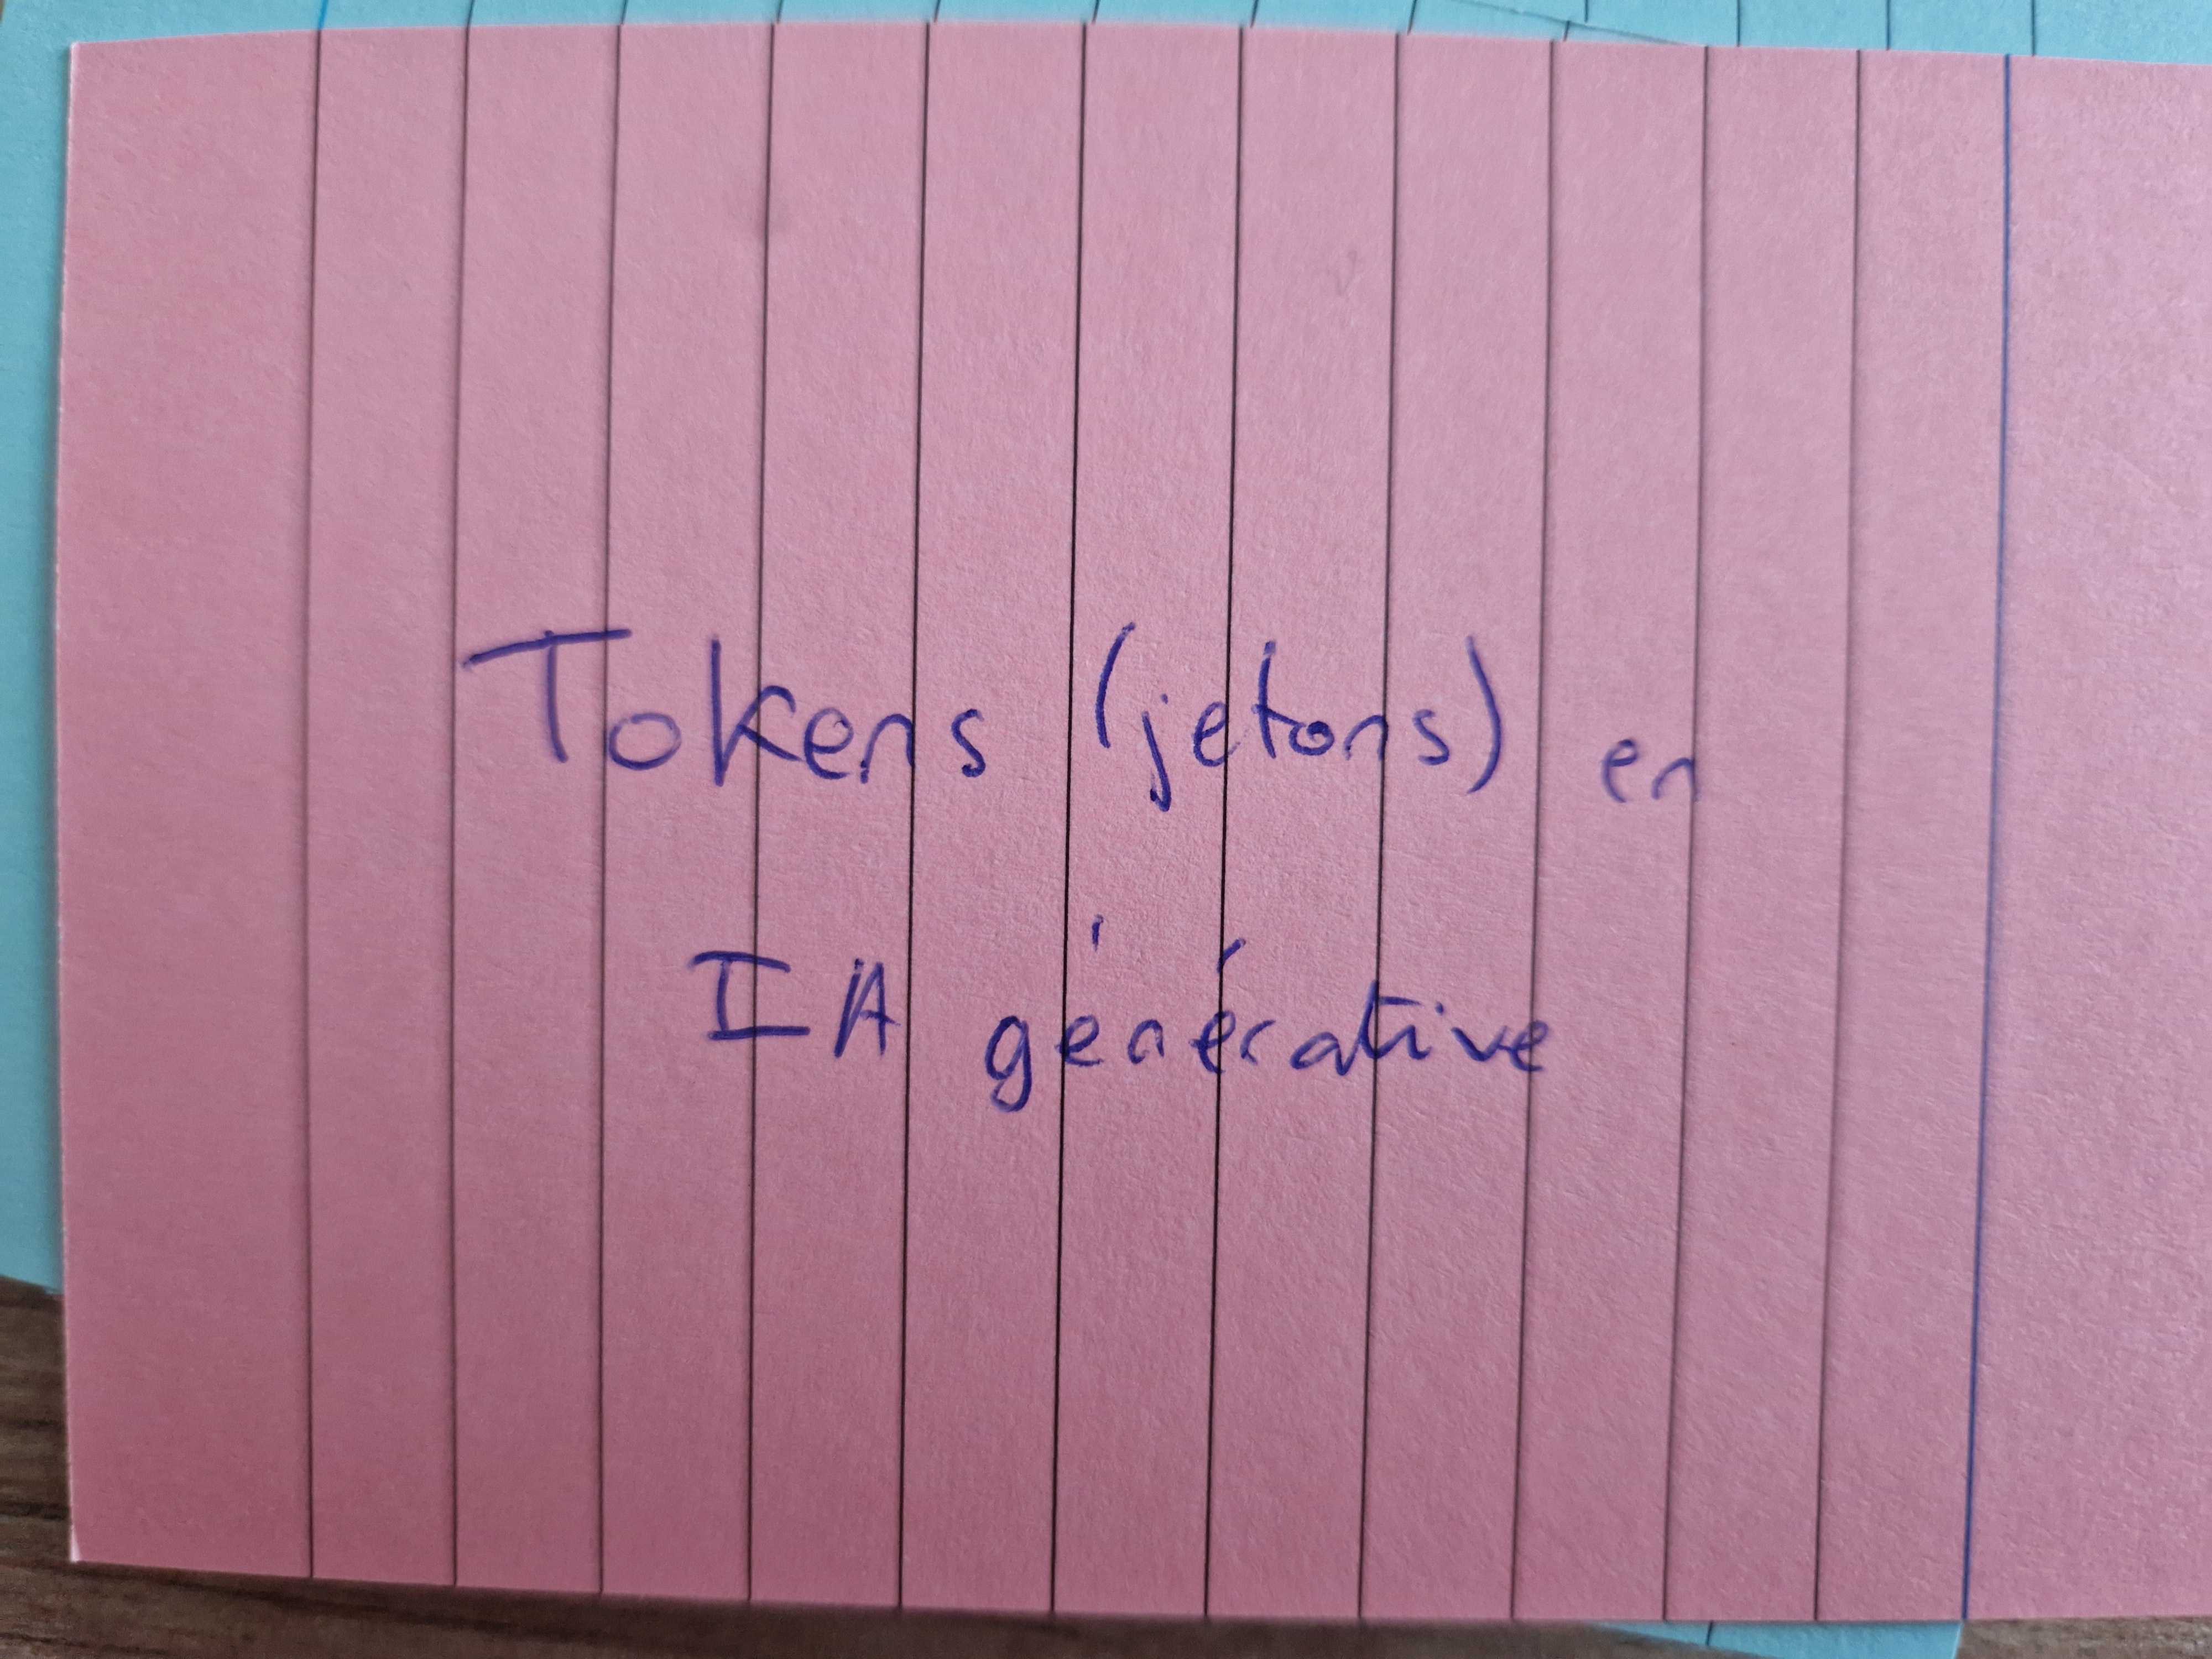 Tokens (jetons) en
IA générative